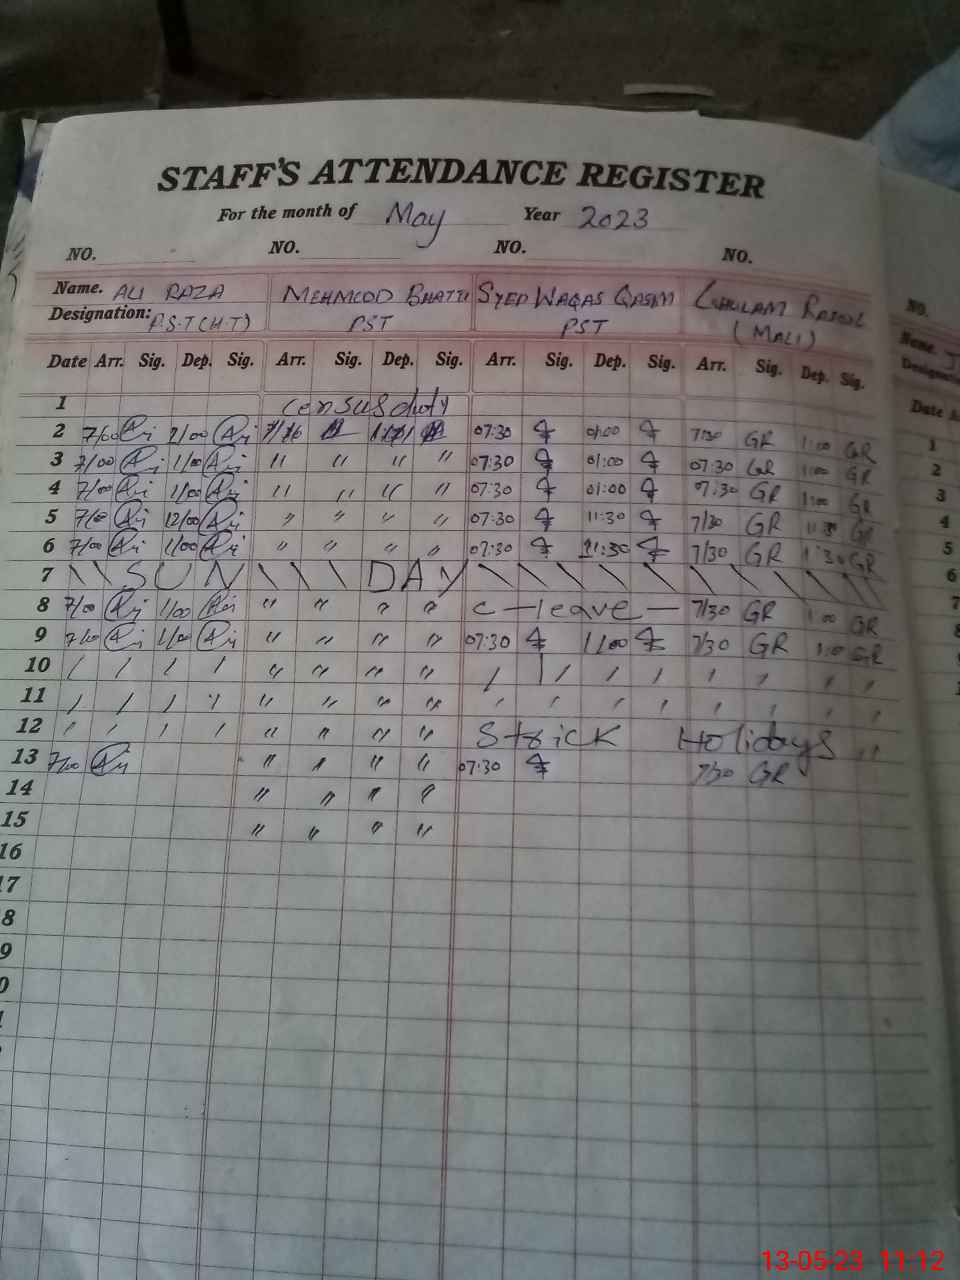 STAFF'S ATTENDANCE REGISTER
For the month of May Year 2023
NO. NO. NO. NO.
Name. ALI RAZA MEHMOOD BHATTI SYED WAQAS QASIM GHULAM RASOOL
Designation: P.S.T (H.T) PST PST (MALI)
Date Arr. Sig. Dep. Sig. Arr. Sig. Dep. Sig. Arr. Sig. Dep. Sig. Arr. Sig. Dep. Sig.
1 Census duty
2 7/00 1/00 07:30 01:00 7/30 GR 1:00 GR
3 7/00 1/00 " " " " 07:30 01:00 07:30 GR 1:00 GR
4 7/00 1/00 " " " " 07:30 01:00 07:30 GR 1:00 GR
5 7/00 12/00 " " " " 07:30 11:30 7/30 GR 11:30 GR
6 7/00 1/00 " " " " 07:30 11:30 7/30 GR GR
7 \ \ S U N \ \ \ D A Y \ \ \ \ \ \ \ \ \ \
8 7/00 1/00 " " " " C - leave - 7/30 GR 1:00 GR
9 7/00 1/00 " " " " 07:30 1/00 7/30 GR GR
10 / / / / " " " " / / / / ' ' ' '
11 / / / / " " " " ' ' ' ' ' ' ' '
12 ' ' ' ' " " " " Strick Holidays "
13 7/00 " " " " 07:30 7/30 GR
14 " " " "
15 " " " "
16
17
8
9
0
NO.
Name. J
Date A
1
2
3
4
5
6
7
8
13-05-23 11:12